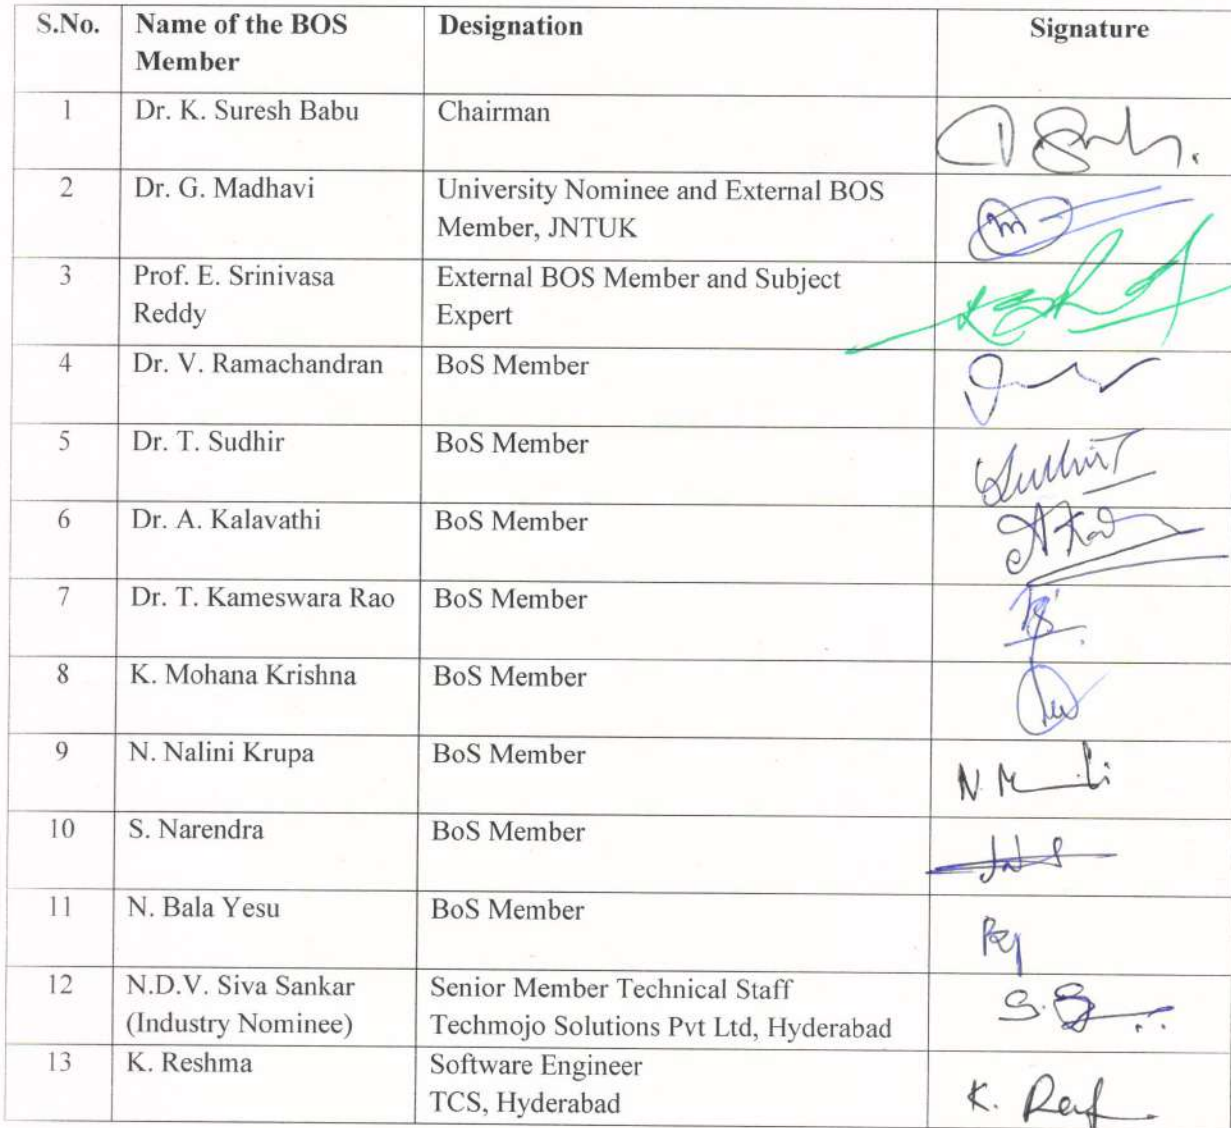 S.No. Name of the BOS Designation Signature
Member
1 Dr. K. Suresh Babu Chairman
2 Dr. G. Madhavi University Nominee and External BOS
Member, JNTUK
3 Prof. E. Srinivasa External BOS Member and Subject
Reddy Expert
4 Dr. V. Ramachandran BoS Member
5 Dr. T. Sudhir BoS Member
6 Dr. A. Kalavathi BoS Member
7 Dr. T. Kameswara Rao BoS Member
8 K. Mohana Krishna BoS Member
9 N. Nalini Krupa BoS Member
10 S. Narendra BoS Member
11 N. Bala Yesu BoS Member
12 N.D.V. Siva Sankar Senior Member Technical Staff
(Industry Nominee) Techmojo Solutions Pvt Ltd, Hyderabad
13 K. Reshma Software Engineer
TCS, Hyderabad